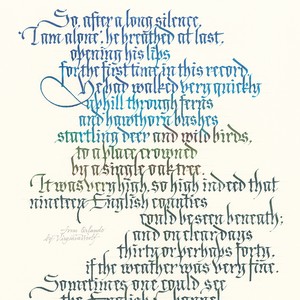 So, after a long silence,
'I am alone', he breathed at last,
opening his lips
for the first time in this record.
He had walked very quickly
uphill through ferns
and hawthorn bushes
startling deer and wild birds,
to a place crowned
by a single oak tree.
It was very high, so high indeed that
nineteen English counties
could be seen beneath;
from Orlando
by Virginia Woolf
and on clear days
thirty or perhaps forty,
if the weather was very fine.
Sometimes one could see
the English Channel